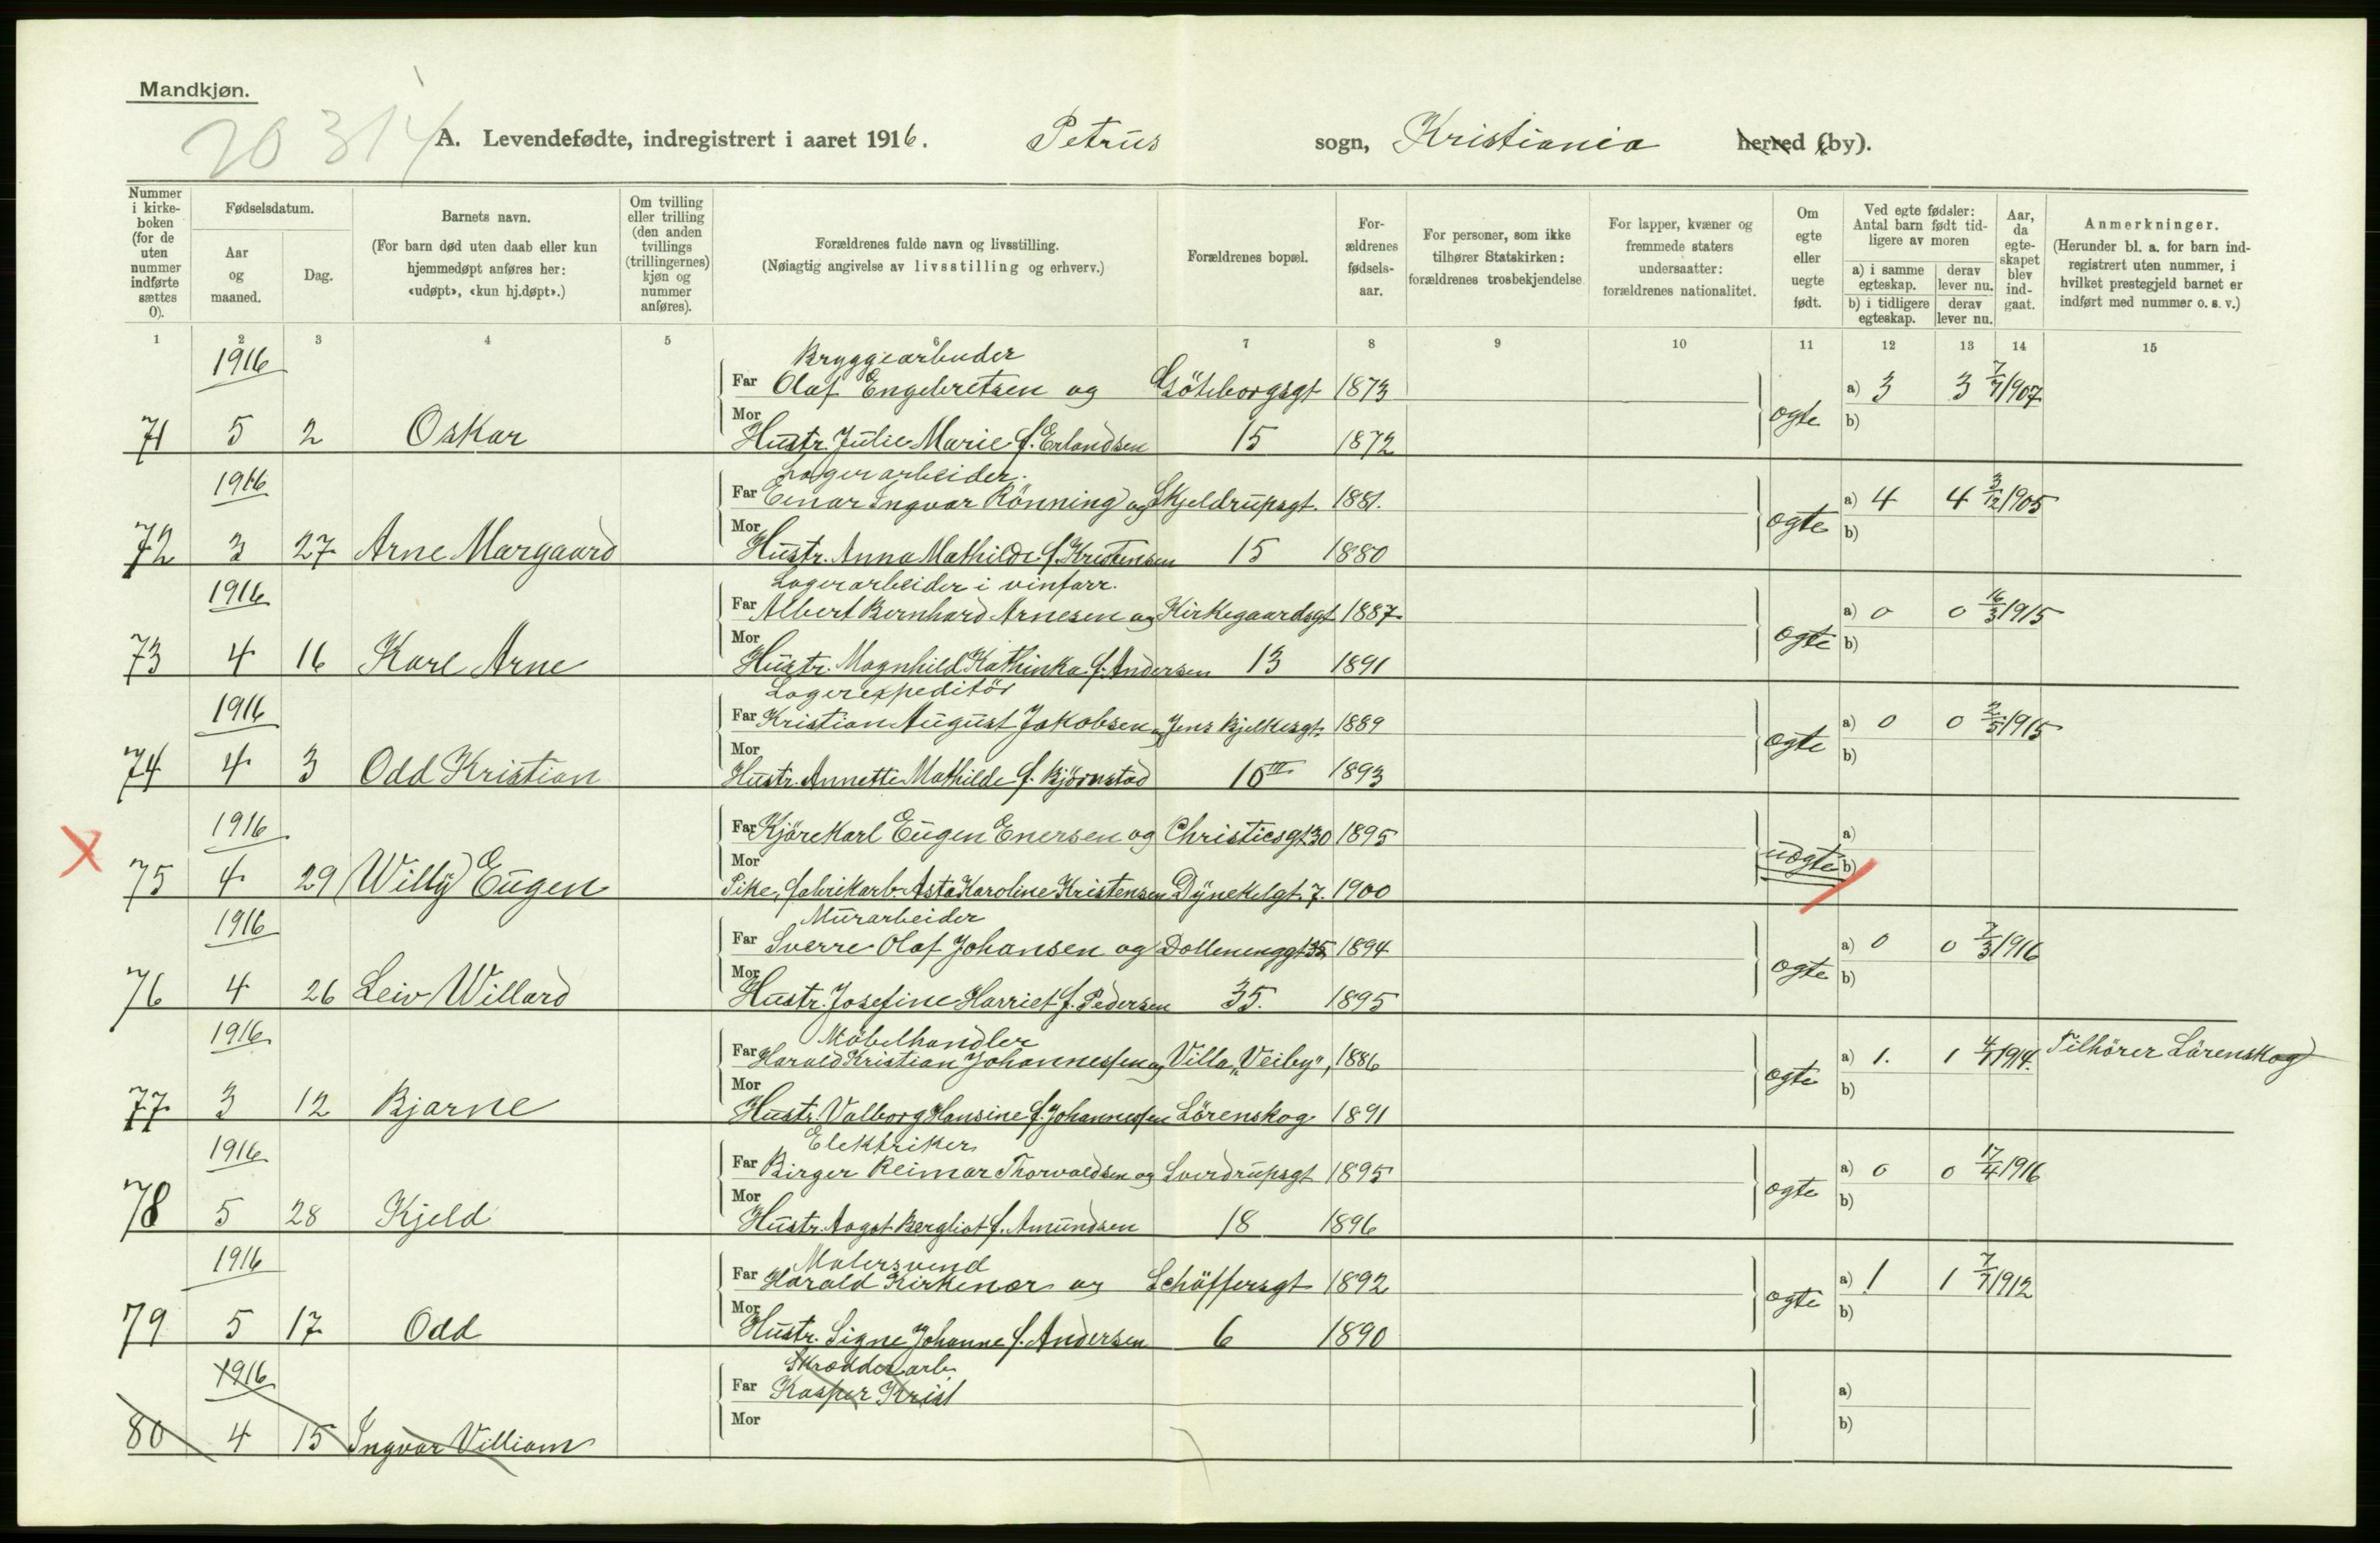 Mandkjøn.
20 314
A. Levendefødte, indregistrert i aaret 1916. Petrus sogn, Kristiania herred (by).
Nummer i kirkeboken (for de uten nummer indførte sættes 0).
Fødselsdatum.
Aar og maaned.
Dag.
Barnets navn.
(For barn død uten daab eller kun hjemmedøpt anføres her: «udøpt», «kun hj.døpt».)
Om tvilling eller trilling (den anden tvillings (trillingernes) kjøn og nummer anføres).
Forældrenes fulde navn og livsstilling.
(Nøiagtig angivelse av livsstilling og erhverv.)
Forældrenes bopæl.
Forældrenes fødselsaar.
For personer, som ikke tilhører Statskirken: forældrenes trosbekjendelse
For lapper, kvæner og fremmede staters undersaatter: forældrenes nationalitet.
Om egte eller uegte født.
Ved egte fødsler: Antal barn født tidligere av moren
a) i samme egteskap. derav lever nu.
b) i tidligere egteskap. derav lever nu.
Aar, da egteskapet blev indgaat.
Anmerkninger.
(Herunder bl. a. for barn indregistrert uten nummer, i hvilket prestegjeld barnet er indført med nummer o. s. v.)
1 2 3 4 5 6 7 8 9 10 11 12 13 14 15
1916 Bryggearbeider
Far Olaf Engebretsen og Göteborgsgt 1873 a) 3 3 7/7 1907
71 5 2 Oskar Mor Hustr. Julie Marie f. Erlandsen 15 1872 ogte b)
1916 Lagerarbeider.
Far Einar Ingvar Rönning og Skjeldrupsgt. 1881. a) 4 4 3/12 1905
72 3 27 Arne Margaard Mor Hustr. Anna Mathilde f. Kristensen 15 1880 ogte b)
1916 Lagerarbeider i vinforr.
Far Albert Bernhard Arnesen og Kirkegaardsgt 1887 a) 0 0 16/3 1915
73 4 16 Karl Arne Mor Hustr. Magnhild Kathinka f. Andersen 13 1891 ogte b)
1916 Lagerexpeditör
Far Kristian August Jakobsen og Jens Bjelkesgt. 1889 a) 0 0 2/5 1915
74 4 3 Odd Kristian Mor Hustr. Annette Mathilde f. Björnstad 10 III 1893 ogte b)
1916 Far Kjörekarl Eugen Enersen og Christiesgt 30 1895 a)
X 75 4 29 Willy Eugen Mor Pike, fabrikarb. Asta Karoline Kristensen Dynekilgt. 7. 1900 uogte b)
1916 Murarbeider
Far Sverre Olaf Johansen og Dollenenggt 35 1894 a) 0 0 7/3 1916
76 4 26 Leiv Willard Mor Hustr. Josefine Harriet f. Pedersen 35. 1895 ogte b)
1916 Möbelhandler
Far Harald Kristian Johannessen og Villa „Veiby", 1886 a) 1. 1 4/7 1914. Tilhörer Lörenskog
77 3 12 Bjarne Mor Hustr. Valborg Hansine f. Johannessen Lörenskog 1891 ogte b)
1916 Elektriker
Far Birger Reimar Thorvaldsen og Sverdrupsgt 1895 a) 0 0 17/4 1916
78 5 28 Kjeld Mor Hustr. Aagot Bergliot f. Amundsen 18 1896 ogte b)
1916 Malersvend
Far Harald Kirkenær og Schöffersgt 1892 a) 1 1 7/7 1912
79 5 17 Odd Mor Hustr. Signe Johanne f. Andersen 6 1890 ogte b)
1916 Skrædderarb.
Far Kasper Krist a)
80 4 15 Ingvar Villiam Mor b)